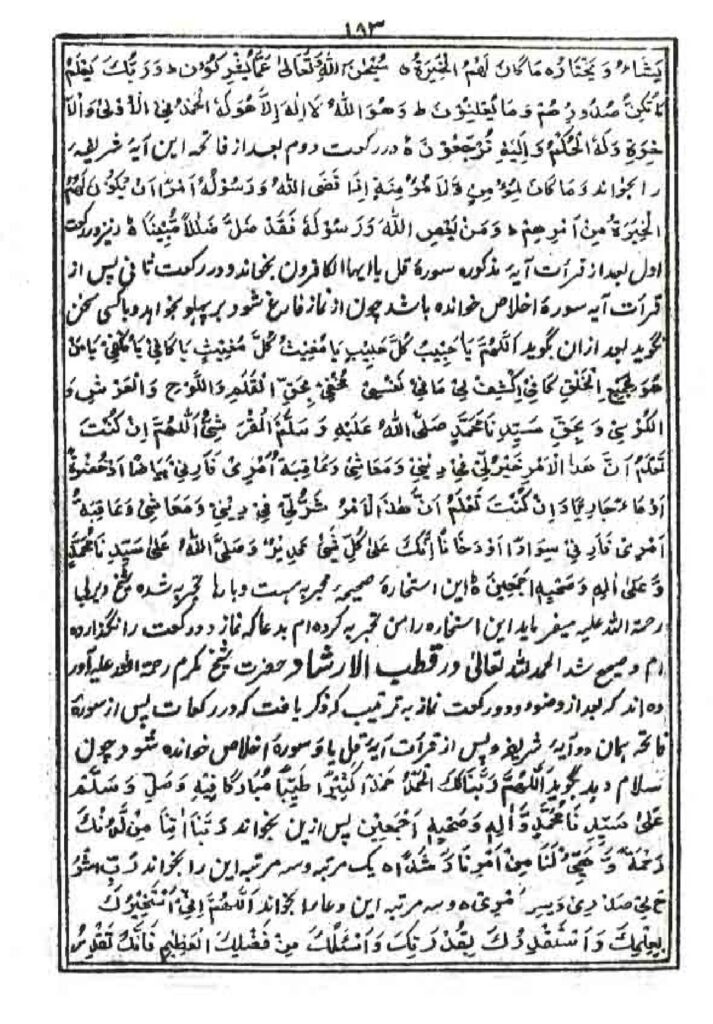 ١٨٣
يَشَاءُ وَ يَخْتَارُ ه مَا كَانَ لَهُمُ الْخِيَرَةُ ه سُبْحٰنَ اللّٰهِ وَ تَعَالٰى عَمَّا يُشْرِكُوْنَ ط وَ رَبُّكَ يَعْلَمُ
مَا تُكِنُّ صُدُوْرُهُمْ وَ مَا يُعْلِنُوْنَ ط وَ هُوَ اللّٰهُ لَا اِلٰهَ اِلَّا هُوَ لَهُ الْحَمْدُ فِى الْاُوْلٰى وَ الْاٰ
خِرَةِ وَ لَهُ الْحُكْمُ وَ اِلَيْهِ تُرْجَعُوْنَ ه در رکعت دوم بعد از فاتحه این آیهٔ شریفه
را بخواند وَ مَا كَانَ لِمُؤْمِنٍ وَّ لَا مُؤْمِنَةٍ اِذَا قَضَى اللّٰهُ وَ رَسُوْلُهٗ اَمْرًا اَنْ يَّكُوْنَ لَهُمُ
الْخِيَرَةُ مِنْ اَمْرِهِمْ ط وَ مَنْ يَّعْصِ اللّٰهَ وَ رَسُوْلَهٗ فَقَدْ ضَلَّ ضَلٰلًا مُّبِيْنًا ه و نیز در رکعت
اول بعد از قرأت آیهٔ مذکوره سورهٔ قل یا ایها الکافرون بخواند و در رکعت ثانی پس از
قرأت آیه سورهٔ اخلاص خوانده باشد چون از نماز فارغ شود بر پهلو بخوابد و با کسی سخن
نگوید بعد ازان گوید اَللّٰهُمَّ يَا حَبِيْبُ كُلِّ حَبِيْبٍ يَا مُغِيْثُ كُلِّ مُغِيْثٍ يَا كَافِىْ يَا مُكْفِىْ يَا مَنْ
هُوَ بِجَمِيْعِ الْخَلْقِ كَافِىْ اِكْشِفْ لِىْ مَا فِىْ نَفْسِىْ بِحَقِّ الْقَلَمِ وَ اللَّوْحِ وَ الْعَرْشِ وَ
الْكُرْسِىِّ وَ بِحَقِّ سَيِّدِ نَا مُحَمَّدٍ صَلَّى اللّٰهُ عَلَيْهِ وَ سَلَّمَ الْقُرَشِىِّ اَللّٰهُمَّ اِنْ كُنْتَ
تَعْلَمُ اَنَّ هٰذَا الْاَمْرَ خَيْرٌ لِّىْ فِىْ دِيْنِىْ وَ مَعَاشِىْ وَ عَاقِبَةِ اَمْرِىْ فَاَرِنِىْ بَيَاضًا اَوْ خُضْرَةً
اَوْ مَاءً جَارِيًا وَ اِنْ كُنْتَ تَعْلَمُ اَنَّ هٰذَا الْاَمْرَ شَرٌّ لِّىْ فِىْ دِيْنِىْ وَ مَعَاشِىْ وَ عَاقِبَةِ
اَمْرِىْ فَاَرِنِىْ سَوَادًا اَوْ دُخَانًا اِنَّكَ عَلٰى كُلِّ شَىْءٍ قَدِيْرٌ وَ صَلَّى اللّٰهُ عَلٰى سَيِّدِ نَا مُحَمَّدٍ
وَّ عَلٰى اٰلِهٖ وَ صَحْبِهٖ اَجْمَعِيْنَ ه این استخارهٔ صحیحهٔ مجربه است و بارها تجربه شده شیخ
رحمة الله علیه میفرماید این استخاره را من تجربه کرده ام بدعا که نماز دو رکعت را نگذارده
ام و صحیح شد الحمد لله تعالیٰ و در قطب الارشاد حضرت شیخ مکرم رحمة الله علیه آور
ده اند که بعد از وضوء دو رکعت نماز به ترتیب که ذکر یافت که در رکعات پس از سورهٔ
فاتحه همان دو آیهٔ شریفه و پس از قرأت آیهٔ قل یا و سورهٔ اخلاص خوانده شود چون
سلام دهد بگوید اَللّٰهُمَّ رَبَّنَا لَكَ الْحَمْدُ حَمْدًا كَثِيْرًا طَيِّبًا مُبَارَكًا فِيْهِ وَ صَلِّ وَ سَلِّمْ
عَلٰى سَيِّدِ نَا مُحَمَّدٍ وَّ اٰلِهٖ وَ صَحْبِهٖ اَجْمَعِيْنَ پس ازین بخواند رَبَّنَا اٰتِنَا مِنْ لَّدُنْكَ
رَحْمَةً وَّ هَيِّئْ لَنَا مِنْ اَمْرِنَا رَشَدًا ه یک مرتبه و سه مرتبه این را بخواند رَبِّ اشْرَ
حْ لِىْ صَدْرِىْ وَ يَسِّرْ لِىْ اَمْرِىْ ه و سه مرتبه این دعا را بخواند اَللّٰهُمَّ اِنِّىْ اَسْتَخِيْرُكَ
بِعِلْمِكَ وَ اَسْتَقْدِرُكَ بِقُدْرَتِكَ وَ اَسْئَلُكَ مِنْ فَضْلِكَ الْعَظِيْمِ فَاِنَّكَ تَقْدِرُ